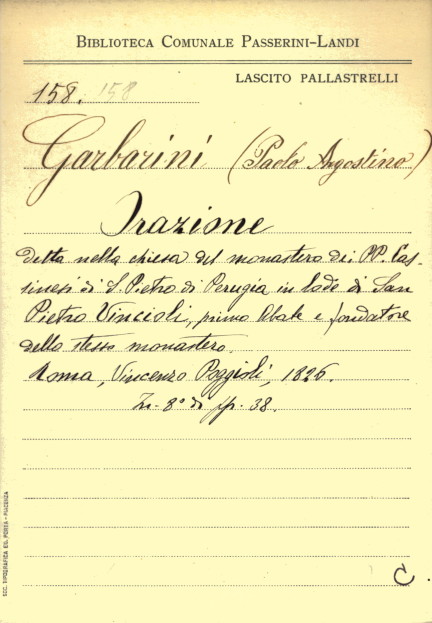 BIBLIOTECA COMUNALE PASSERINI-LANDI
LASCITO PALLASTRELLI
158. 158
Garbarini (Paolo Agostino)
Orazione
detta nella chiesa del monastero dei PP. Cas-
sinesi di S. Pietro di Perugia in lode di San
Pietro Vincioli, primo Abate e fondatore
dello stesso monastero.
Roma, Vincenzo Poggioli, 1826.
In-8° di pp. 38.
C.
SOC. TIPOGRAFICA ED. PORTA - PIACENZA